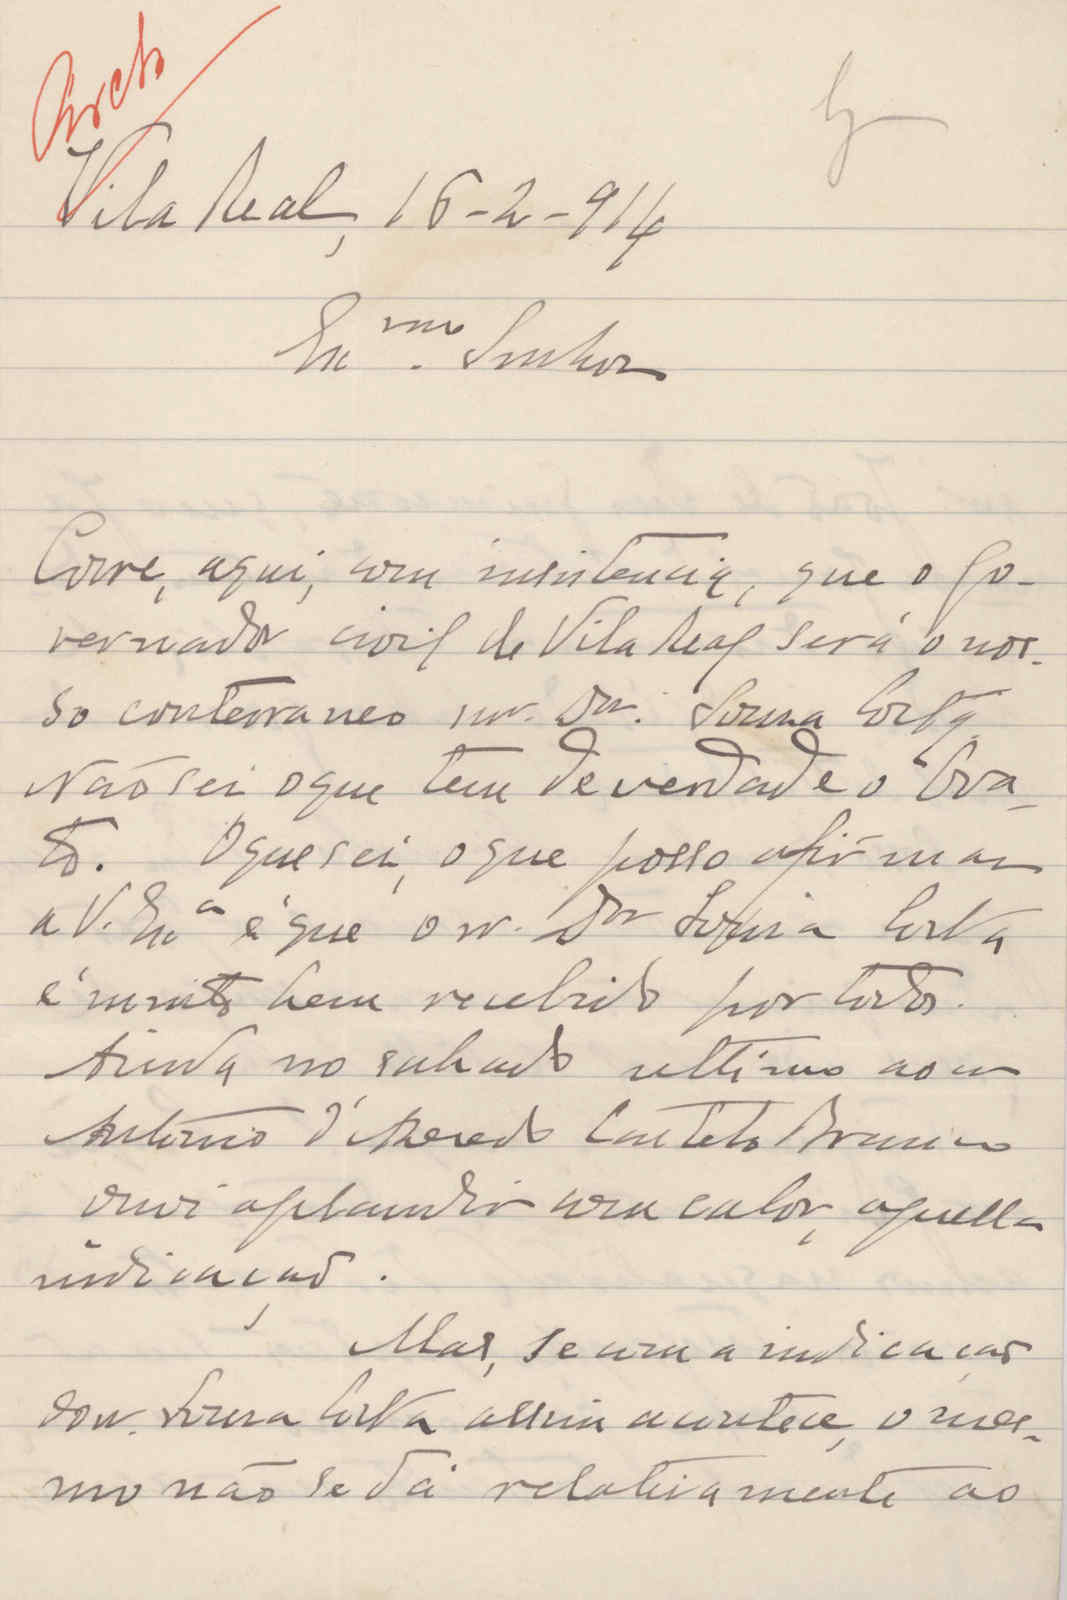 Vila Real, 16-2-914
Exmo. Senhor
Corre, aqui, com insistencia, que o go-
vernador civil de Vila Real será o nos-
so conterraneo snr. Dr. Sousa Costa.
Não sei o que tem de verdade o boa-
to. O que sei, o que posso afirmar
a V. Exa é que o sr. Dr Sousa Costa
é muito bem recebido por todos.
Ainda no sabado ultimo ao sr
Antonio d'Azevedo Castelo Branco
ouvi aplaudir com calor, aquella
indicação.
Mas, se com a indicação
do sr. Sousa Costa assim acontece, o mes-
mo não se dá relativamente ao